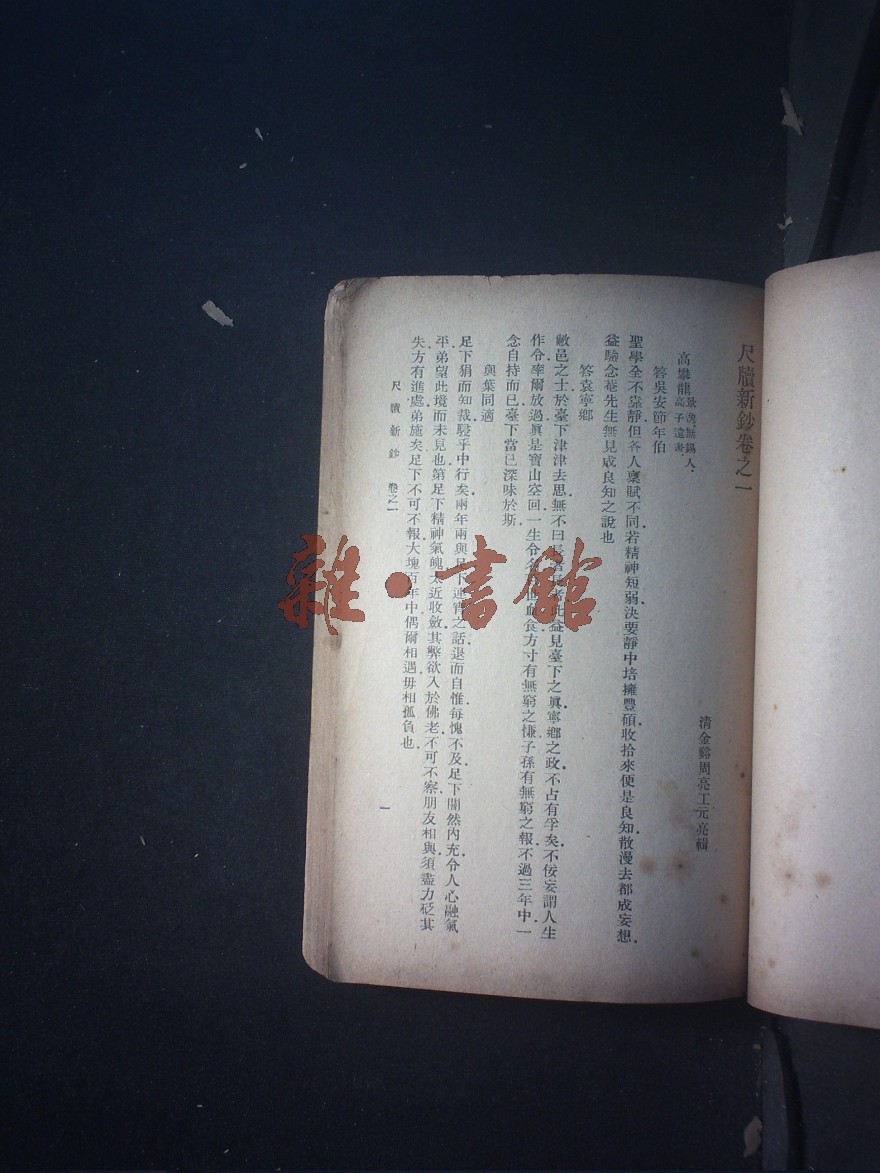 尺牘新鈔卷之一
清金谿周亮工元亮輯
高攀龍 景逸無錫人. 高子遺書.
答吳安節年伯
聖學全不靠靜.但各人稟賦不同.若精神短弱.決要靜中培擁豐碩.收拾來便是良知.散漫去都成妄想.
益驗念菴先生無見成良知之說也
答袁寧鄉
敝邑之士於臺下津津去思.無不曰長者長者.此益見臺下之眞.寧鄉之政.不占有孚矣.不佞妄謂人生
作令.率爾放過.眞是寶山空回.一生令名.血食.方寸有無窮之慊.子孫有無窮之報.不過三年中一
念自持而已.臺下當已深味於斯.
與葉同適
足下狷而知裁.駸乎中行矣.兩年兩與足下連宵之話.退而自惟.每愧不及.足下闇然內充.令人心融氣
平.弟望此境而未見也.第足下精神氣魄太近收斂.其弊欲入於佛老.不可不察.朋友相與.須盡力砭其
失.方有進處.弟施矣.足下不可不報.大塊百年中.偶爾相遇.毋相孤負也.
尺牘新鈔 卷之一
一
雜·書館